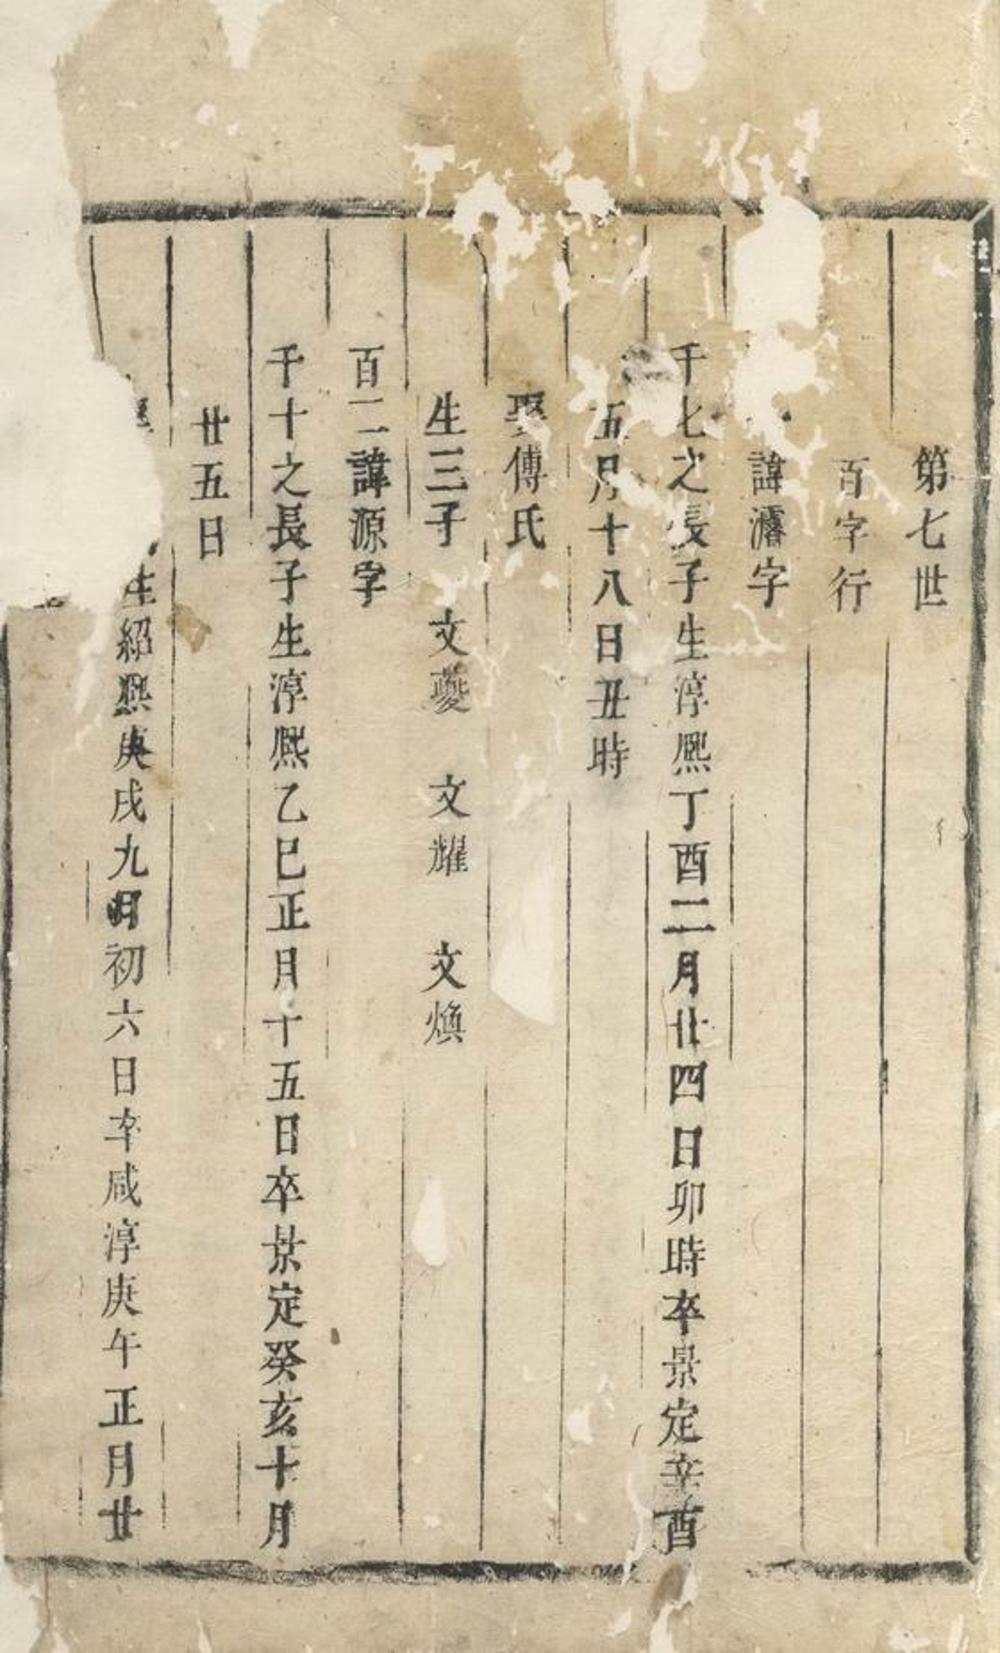 第七世
百字行
諱濬字
千七之長子生淳熙丁酉二月廿四日卯時卒景定辛酉
五月十八日丑時
娶傅氏
生三子 文夔 文耀 文煥
百二諱源字
千十之長子生淳熙乙巳正月十五日卒景定癸亥十月
廿五日
生紹熙庚戌九月初六日卒咸淳庚午正月廿